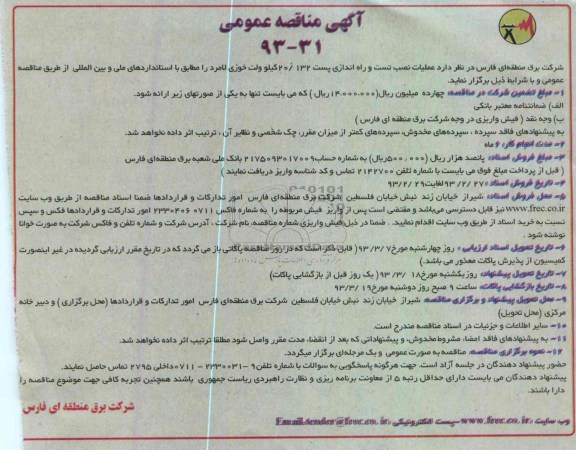 آگهی مناقصه عمومی
۹۳-۳۱
شرکت برق منطقه‌ای فارس در نظر دارد عملیات نصب تست و راه اندازی پست ۱۳۲ /۲۰کیلو ولت خوزی لامرد را مطابق با استانداردهای ملی و بین المللی از طریق مناقصه
عمومی و با شرایط ذیل برگزار نماید.
۱- مبلغ تضمین شرکت در مناقصه: چهارده میلیون ریال(۱۴۰۰۰۰۰۰ریال ) که می بایست تنها به یکی از صورتهای زیر ارائه شود.
الف) ضمانتنامه معتبر بانکی
ب) وجه نقد ( فیش واریزی در وجه شرکت برق منطقه ای فارس )
به پیشنهادهای فاقد سپرده ، سپرده‌های مخدوش، سپرده‌های کمتر از میزان مقرر، چک شخصی و نظایر آن ، ترتیب اثر داده نخواهد شد.
۲- مدت انجام کار: ۶ ماه
۳- مبلغ فروش اسناد: پانصد هزار ریال (۵۰۰۰۰۰ریال) به شماره حساب۲۱۷۵۰۹۳۰۱۷۰۰۹ بانک ملی شعبه برق منطقه‌ای فارس
( قبل از پرداخت مبلغ فوق می بایست با شماره تلفن ۲۱۴۲۷۰۰ تماس و کد شناسه واریز دریافت نمایند )
۴- تاریخ فروش اسناد: ۹۳/۲/۲۷ لغایت۹۳/۲/۲۹
۵- محل فروش اسناد: شیراز خیابان زند نبش خیابان فلسطین شرکت برق منطقه‌ای فارس امور تدارکات و قراردادها ضمنا اسناد مناقصه از طریق وب سایت
www.frec.co.ir نیز قابل دسترسی می‌باشد و مقتضی است پس از واریز فیش مربوطه را به شماره فاکس ۰۷۱۱-۲۳۳۰۴۰۶ امور تدارکات و قراردادها فکس و سپس
نسبت به خرید اسناد از طریق وب سایت اقدام نمایید . ضمنا در ذیل فیش واریزی شماره مناقصه، نام شرکت ، آدرس شرکت و شماره تلفن و فاکس شرکت به صورت خوانا
نوشته شود.
۶- تاریخ تحویل اسناد ارزیابی : روز چهارشنبه مورخ۹۳/۳/۷( قابل ذکر است که در روز مناقصه پاکاتی باز می گردد که در تاریخ مقرر ارزیابی گردیده در غیر اینصورت
کمیسیون از پذیرش پاکات معذور می باشد.)
۷- تاریخ تحویل پیشنهاد: روز یکشنبه مورخ۹۳/۳/۱۸ ( یک روز قبل از بازگشایی پاکات)
۸- تاریخ بازگشایی پاکات: ساعت ۹ صبح روز دوشنبه مورخ۹۳/۳/۱۹
۹- محل تحویل پیشنهاد و برگزاری مناقصه: شیراز خیابان زند نبش خیابان فلسطین شرکت برق منطقه‌ای فارس امور تدارکات و قراردادها (محل برگزاری ) و دبیر خانه
مرکزی (محل تحویل)
۱۰- سایر اطلاعات و جزئیات در اسناد مناقصه مندرج است.
۱۱- به پیشنهادهای فاقد امضا، مشروط، مخدوش، و پیشنهاداتی که بعد از انقضاء مدت مقرر واصل شود مطلقا ترتیب اثر داده نخواهد شد.
۱۲- نحوه برگزاری مناقصه: مناقصه به صورت عمومی و یک مرحله‌ای برگزار میگردد.
حضور پیشنهاد دهندگان در جلسه آزاد است. جهت هرگونه پاسخگویی به سوالات با شماره تلفن۹-۲۳۳۰۰۳۱ -۰۷۱۱داخلی ۲۷۹۵ تماس حاصل نمایند.
پیشنهاد دهندگان می بایست دارای حداقل رتبه ۵ از معاونت برنامه ریزی و نظارت راهبردی ریاست جمهوری باشند همچنین تجربه کافی جهت موضوع مناقصه را
دارا باشند.
شرکت برق منطقه ای فارس
وب سایت :www.frec.co.ir-پست الکترونیکی :Email:sender@frec.co.ir